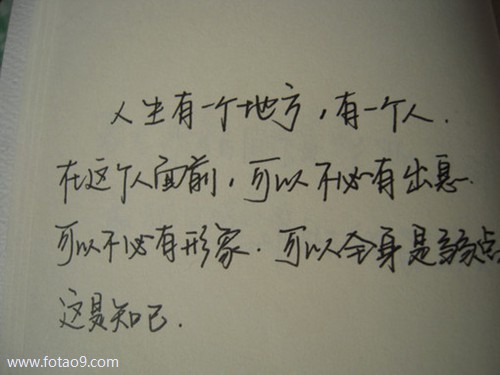 人生有一个地方，有一个人.
在这个人面前，可以不必有出息.
可以不必有形象.可以全身是弱点
这是知己.
www.fotao9.com